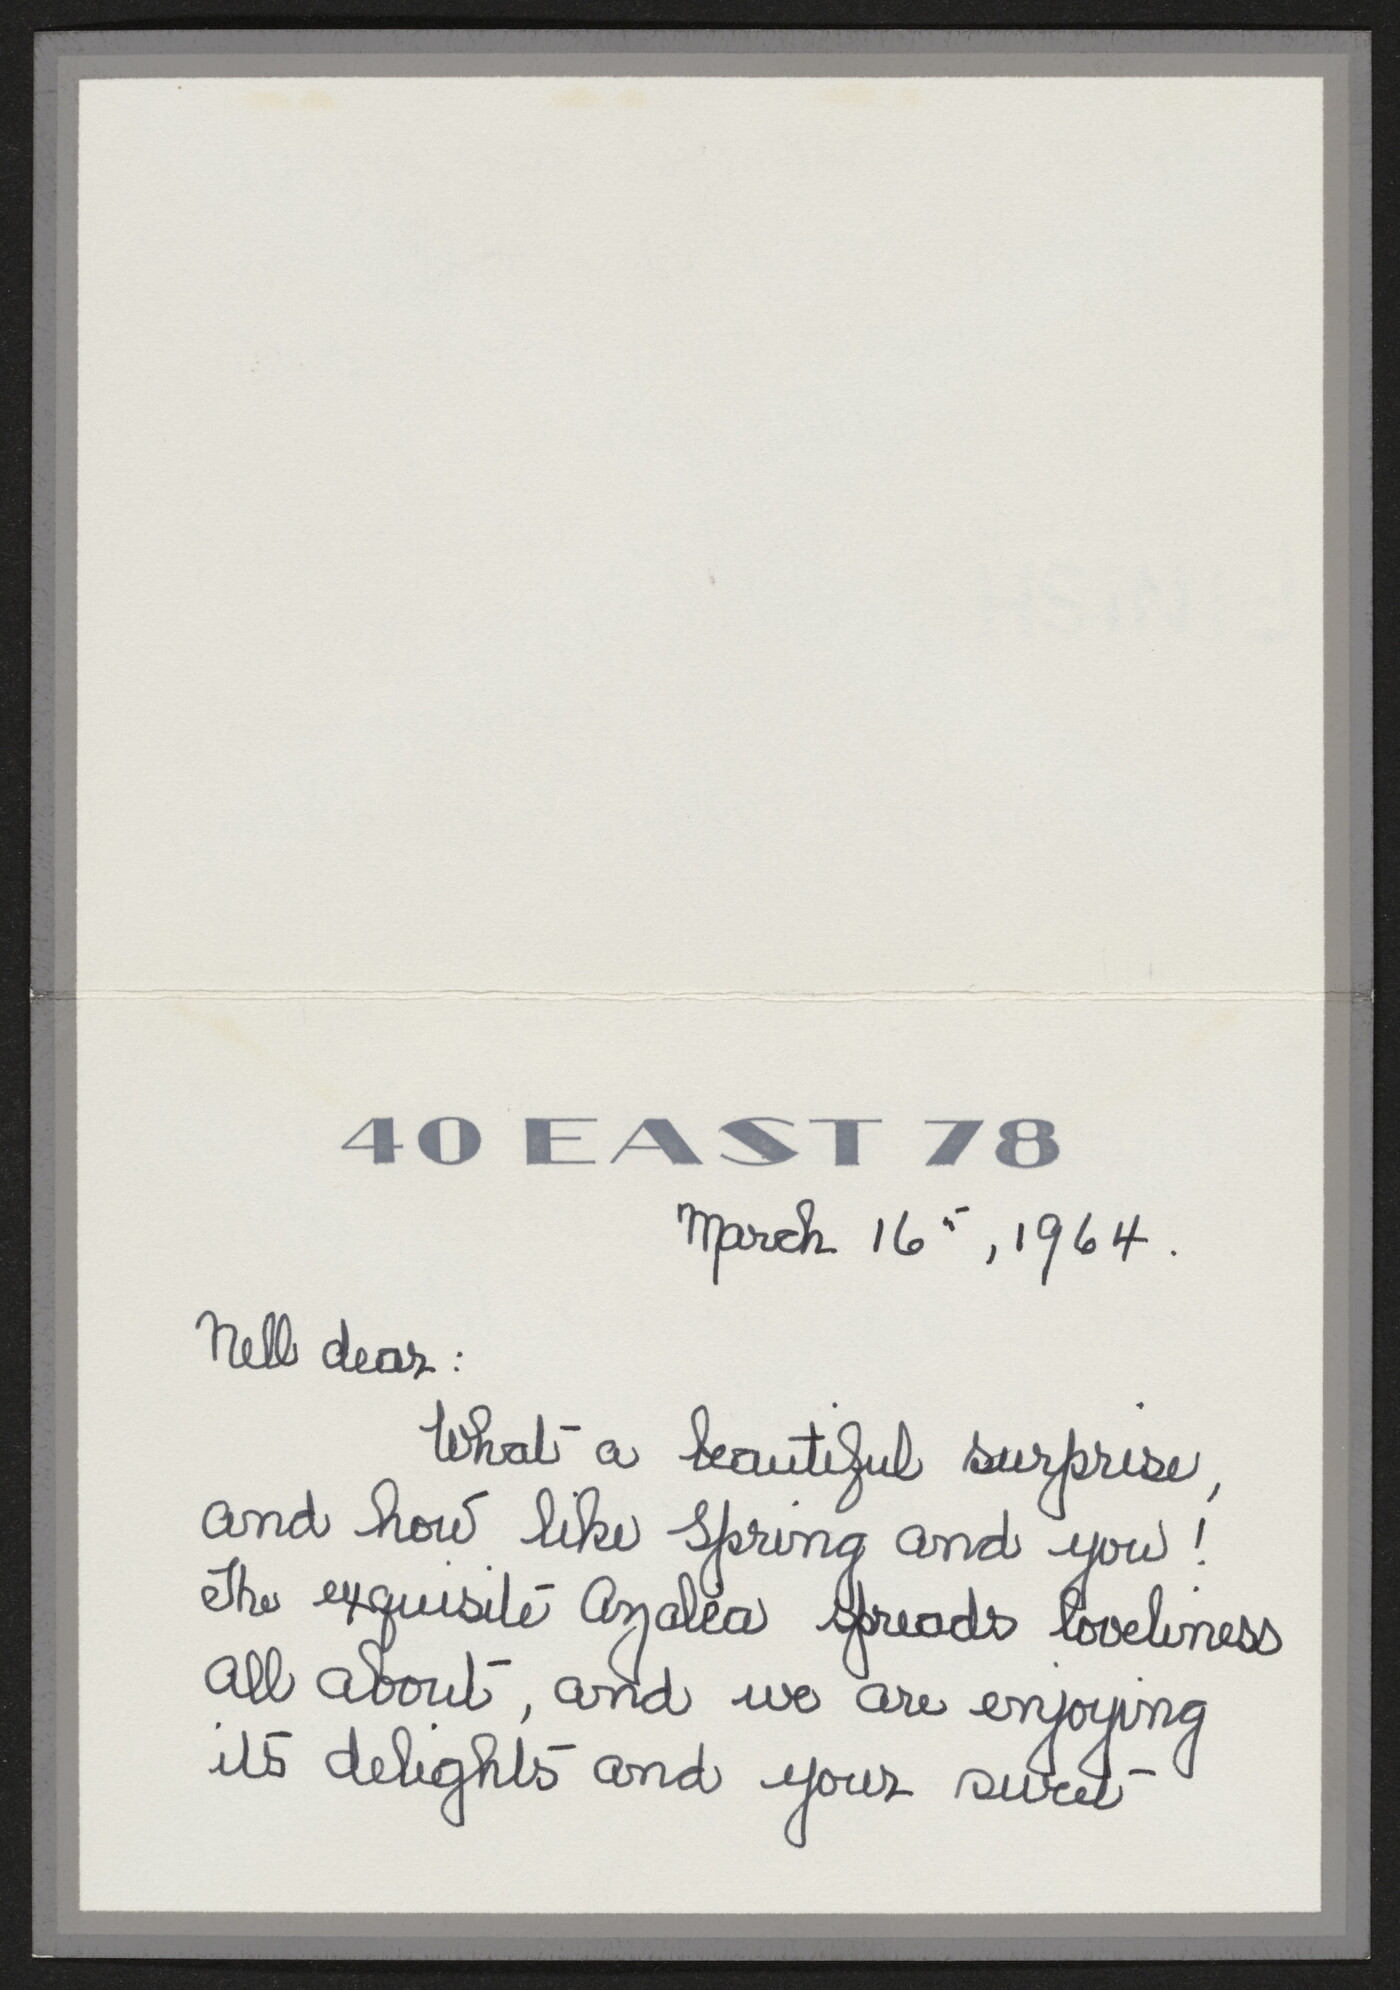 40 EAST 78
March 16", 1964.
Nell dear:
What a beautiful surprise,
and how like Spring and you!
The exquisite Azalea spreads loveliness
all about, and we are enjoying
its delights and your sweet